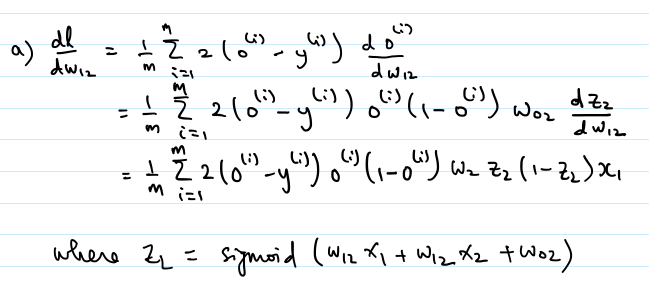 a) dl/dw₁₂ = 1/m Σᵢ₌₁ᵐ 2(o⁽ⁱ⁾ - y⁽ⁱ⁾) do⁽ⁱ⁾/dw₁₂
= 1/m Σᵢ₌₁ᵐ 2(o⁽ⁱ⁾ - y⁽ⁱ⁾) o⁽ⁱ⁾(1 - o⁽ⁱ⁾) w₀₂ dz₂/dw₁₂
= 1/m Σᵢ₌₁ᵐ 2(o⁽ⁱ⁾ - y⁽ⁱ⁾) o⁽ⁱ⁾(1 - o⁽ⁱ⁾) w₂ z₂(1 - z₂)x₁
where z₂ = sigmoid (w₁₂ x₁ + w₁₂ x₂ + w₀₂)